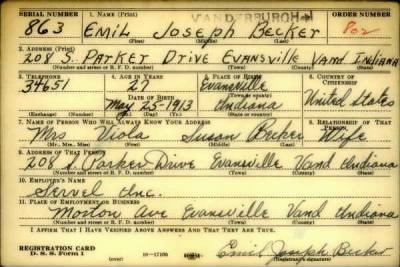 SERIAL NUMBER 1. NAME (Print) VANDERBURGH ORDER NUMBER
863 EMIL JOSEPH BECKER 802
(First) (Middle) (Last)
2. ADDRESS (Print)
208 S. PARKER DRIVE EVANSVILLE VAND INDIANA
(Number and street or R. F. D. number) (Town) (County) (State)
3. TELEPHONE 4. AGE IN YEARS 5. PLACE OF BIRTH 6. COUNTRY OF CITIZENSHIP
34651 27 Evansville
DATE OF BIRTH (Town or county) United States
May 25-1913 Indiana
(Exchange) (Number) (Mo.) (Day) (Yr.) (State or country)
7. NAME OF PERSON WHO WILL ALWAYS KNOW YOUR ADDRESS 8. RELATIONSHIP OF THAT PERSON
Mrs Viola Susan Becker Wife
(Mr., Mrs., Miss) (First) (Middle) (Last)
9. ADDRESS OF THAT PERSON
208 S. Parker Drive Evansville Vand Indiana
(Number and street or R. F. D. number) (Town) (County) (State)
10. EMPLOYER'S NAME
Servel Inc.
11. PLACE OF EMPLOYMENT OR BUSINESS
Morton Ave Evansville Vand Indiana
(Number and street or R. F. D. number) (Town) (County) (State)
I AFFIRM THAT I HAVE VERIFIED ABOVE ANSWERS AND THAT THEY ARE TRUE.
REGISTRATION CARD
D. S. S. Form 1 (over) 16-17105 Emil Joseph Becker
(Registrant's signature)